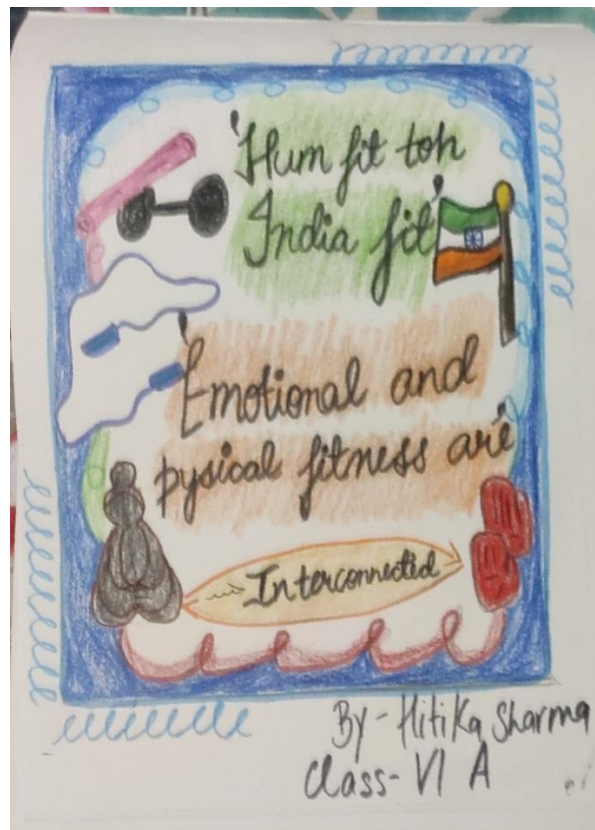 'Hum fit toh
India fit'
'Emotional and
pysical fitness are'
Interconnected
By - Hitika Sharma
Class - VI A